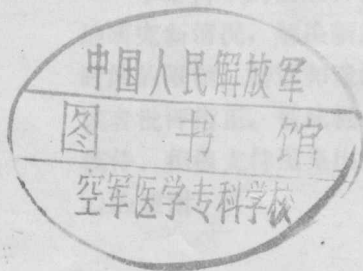 中国人民解放军
图书馆
空军医学专科学校